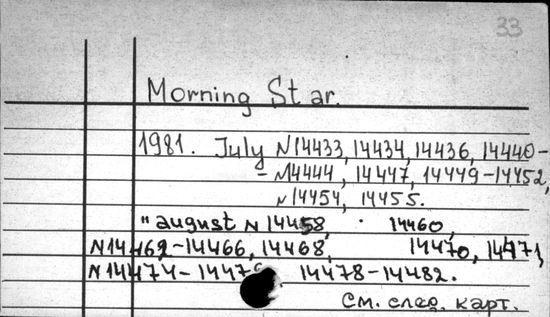 33
Morning Star.
1981. July N14433, 14434, 14436, 14440-
-N14444, 14447, 14449-14452,
N14454, 14455.
" august N 14458, 14460,
N14462-14466, 14468, 14470, 14471,
N14474- 14478-14482.
См. след. карт.